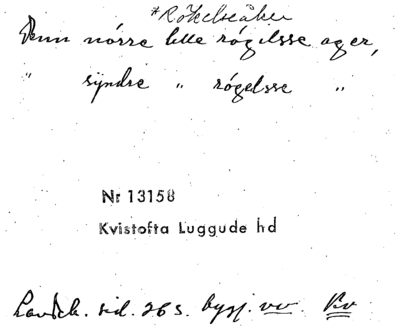 *Rökelseåker
Denn nörre lille rögelsse ager,
" syndre " rögelsse "
Nr 13158
Kvistofta Luggude hd
Landsk. sid. 26 s. bygj. vv. Kv